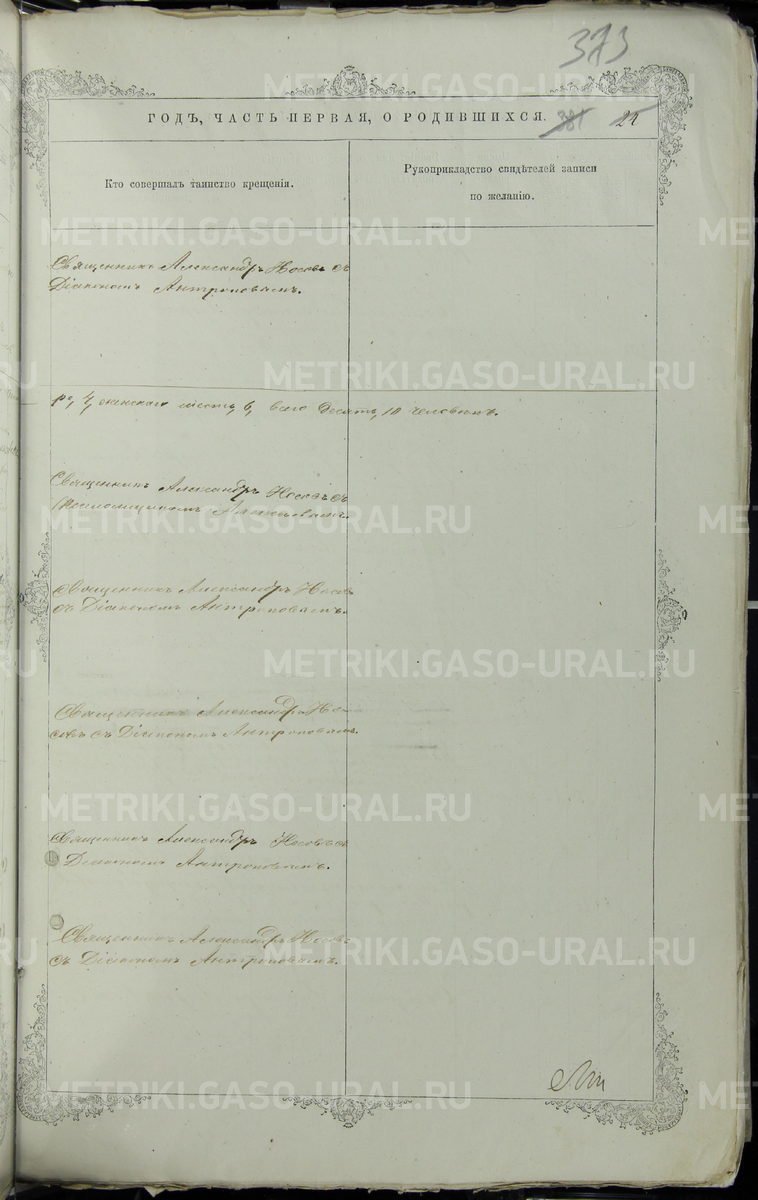 373
ГОДЪ, ЧАСТЬ ПЕРВАЯ, О РОДИВШИХСЯ. 381 24
Кто совершалъ таинство крещенія.
Рукоприкладство свидѣтелей записи
по желанію.
Священникъ Александръ Носовъ съ
Діакономъ Антроповымъ.
ра, 4, женскаго шесть, 6, всего десять, 10 человѣкъ.
Священникъ Александръ Носовъ съ
Псаломщикомъ
Священникъ Александръ Носовъ
съ Діакономъ Антроповымъ.
Священникъ Александръ Но-
совъ съ Діакономъ Антроповымъ.
Священникъ Александръ Носовъ съ
Діакономъ Антроповымъ.
Священникъ Александръ Носовъ
съ Діакономъ Антроповымъ.
METRIKI.GASO-URAL.RU